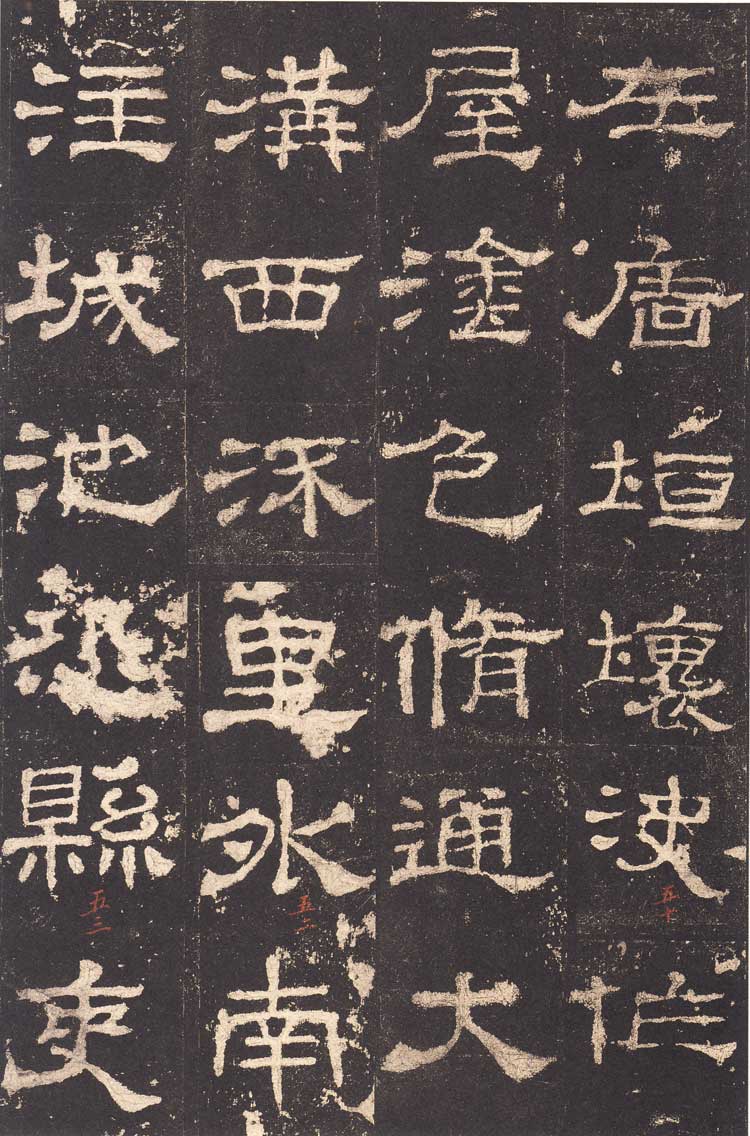 左廧垣壞決作
五十
屋塗色脩通大
溝西流里外南
五二
注城池恐縣吏
五三